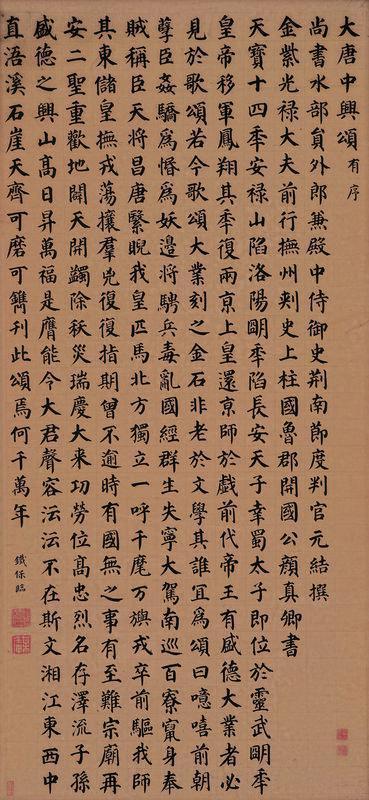 大唐中興頌 有序
尚書水部貟外郎兼殿中侍御史荆南節度判官元結撰
金紫光禄大夫前行撫州刺史上柱國魯郡開國公顔真卿書
天寶十四秊安禄山陷洛陽明秊陷長安天子幸蜀太子即位於靈武明秊
皇帝移軍鳳翔其秊復兩京上皇還京師於戲前代帝王有盛德大業者必
見於歌頌若今歌頌大業刻之金石非老於文學其誰宜爲頌曰噫嘻前朝
孽臣姦驕爲惛爲妖邊將騁兵毒亂國經群生失寧大駕南巡百寮竄身奉
賊稱臣天將昌唐繄睨我皇匹馬北方獨立一呼千麾万旟戎卒前驅我師
其東儲皇撫戎蕩攘羣兇復復指期曾不逾時有國無之事有至難宗廟再
安二聖重歡地闢天開蠲除祅災瑞慶大来功勞位髙忠烈名存澤流子孫
盛德之興山髙日昇萬福是膺能令大君聲容沄沄不在斯文湘江東西中
直浯溪石崖天齊可磨可鐫刊此頌焉何千萬年
鐵保臨